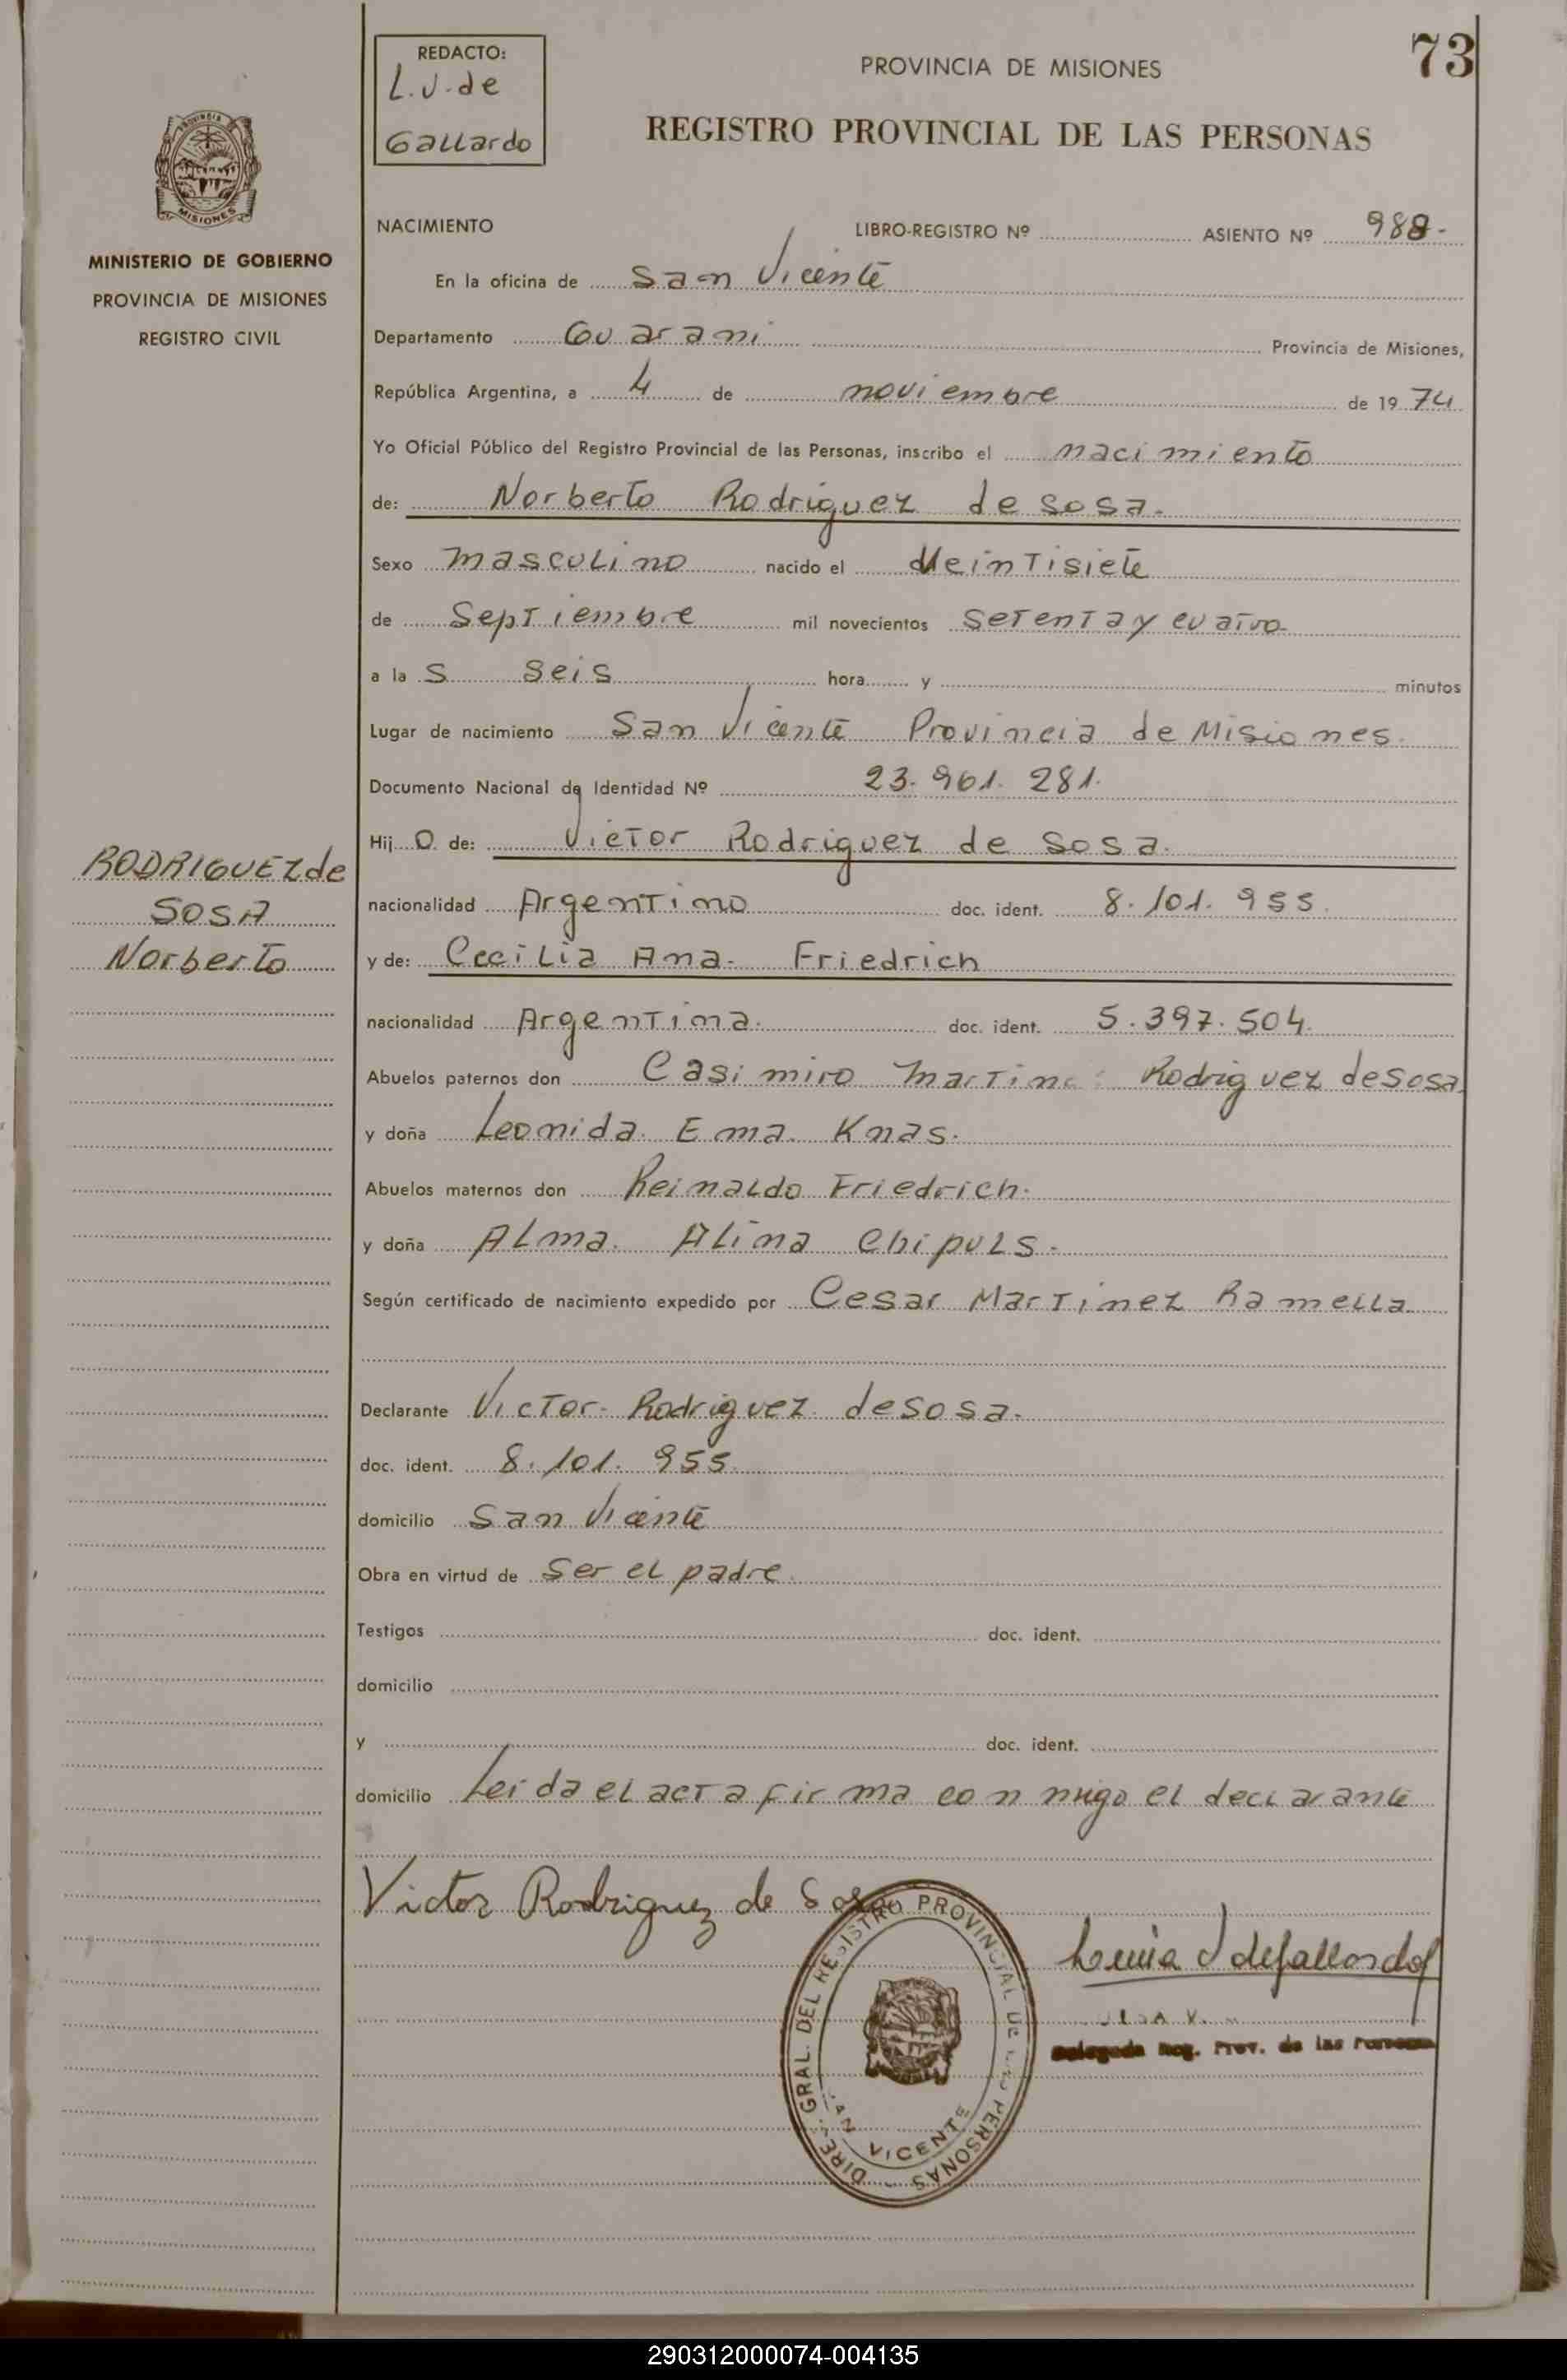 73
REDACTO:
L.J. de
Gallardo
PROVINCIA DE MISIONES
REGISTRO PROVINCIAL DE LAS PERSONAS
PROVINCIA
MISIONES
MINISTERIO DE GOBIERNO
PROVINCIA DE MISIONES
REGISTRO CIVIL
NACIMIENTO LIBRO-REGISTRO Nº ASIENTO Nº 988-
En la oficina de San Vicente
Departamento Guarani Provincia de Misiones,
República Argentina, a 4 de noviembre de 1974
Yo Oficial Público del Registro Provincial de las Personas, inscribo el nacimiento
de: Norberto Rodriguez de Sosa.
Sexo masculino nacido el Veintisiete
de Septiembre mil novecientos setenta y cuatro
a las seis hora y minutos
Lugar de nacimiento San Vicente Provincia de Misiones.
Documento Nacional de Identidad Nº 23.961.281.
Hijo de: Victor Rodriguez de Sosa.
RODRIGUEZ de
SOSA
Norberto
nacionalidad Argentino doc. ident. 8.101.955.
y de: Cecilia Ana. Friedrich
nacionalidad Argentina. doc. ident. 5.397.504.
Abuelos paternos don Casimiro Rodriguez de Sosa
y doña Leonida. Ema. Knas.
Abuelos maternos don Reinaldo Friedrich.
y doña Alma. Alina Chipuls.
Según certificado de nacimiento expedido por Cesar Martinez Ramella
Declarante Victor. Rodriguez de Sosa.
doc. ident. 8.101.955.
domicilio San Vicente
Obra en virtud de Ser el padre.
Testigos doc. ident.
domicilio
y doc. ident.
domicilio Leida el acta firma conmigo el declarante
Victor Rodriguez de Sosa
DIRE. GRAL. DEL REGISTRO PROVINCIAL DE LAS PERSONAS
SAN VICENTE
Delegada Reg. Prov. de las Personas
290312000074-004135